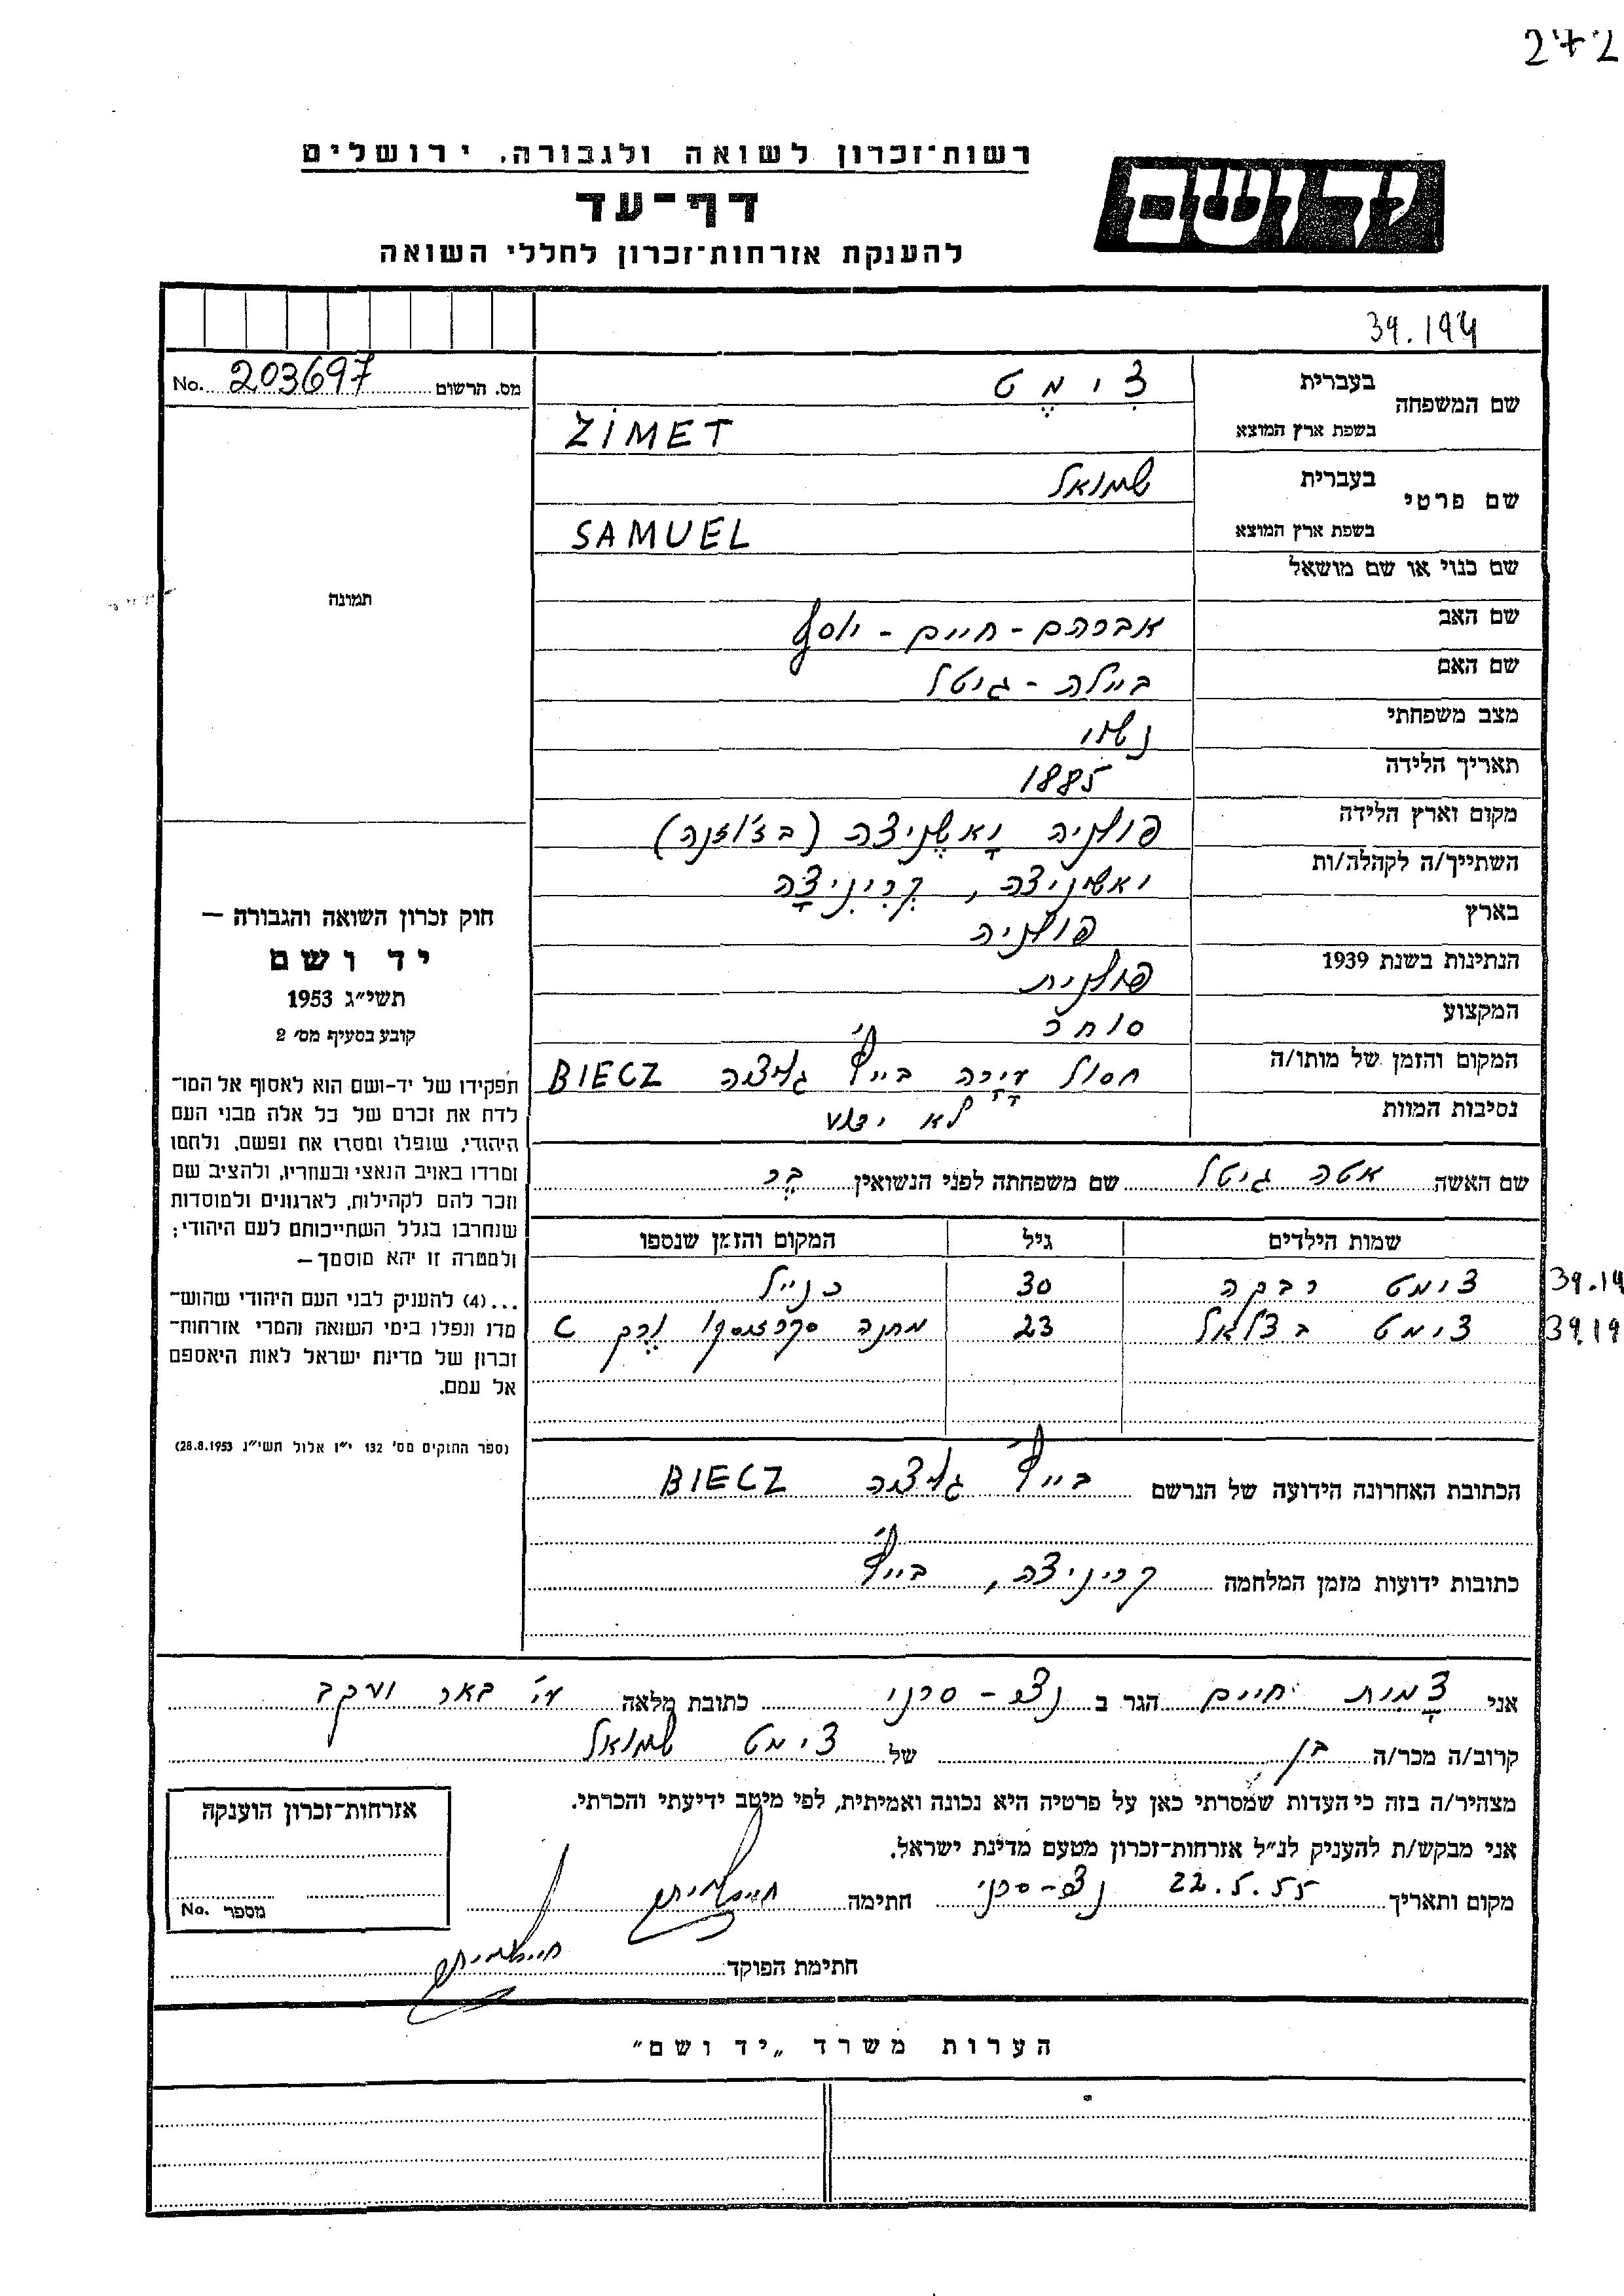 2.7.7
רשות־זכרון לשואה ולגבורה, ירושלים
יד ושם
דף־עד
להענקת אזרחות־זכרון לחללי השואה
39.194
מס. הרשום 203697 No.
שם המשפחה בעברית צִימֶט
בשפת ארץ המוצא ZIMET
שם פרטי בעברית שמואל
בשפת ארץ המוצא SAMUEL
שם כנוי או שם מושאל
שם האב אברהם - חיים - יוסף
שם האם ביילה - גיטל
מצב משפחתי נשוי
תאריך הלידה 1885
מקום וארץ הלידה פולניה וָאשֶניצה
השתייך/ה לקהלה/ות ואשניצה, קְרִינִיצָה
בארץ פולניה
הנתינות בשנת 1939 פולנית
המקצוע סוחר
המקום והזמן של מותו/ה חסול עירה בייץ' גליציה BIECZ
נסיבות המוות לא ידוע
תמונה
חוק זכרון השואה והגבורה —
יד ושם
תשי״ג 1953
קובע בסעיף מס׳ 2
תפקידו של יד-ושם הוא לאסוף אל המו־
לדת את זכרם של כל אלה מבני העם
היהודי, שנפלו ומסרו את נפשם, נלחמו
ומרדו באויב הנאצי ובעוזריו, ולהציב שם
וזכר להם לקהילות, לארגונים ולמוסדות
שנחרבו בגלל השתייכותם לעם היהודי;
ולמטרה זו יהא מוסמך —
...(4) להעניק לבני העם היהודי שהוש־
מדו ונפלו בימי השואה והמרי אזרחות־
זכרון של מדינת ישראל לאות היאספם
אל עמם.
(ספר החוקים מס׳ 132 י״ז אלול תשי״ג 28.8.1953)
שם האשה אטה גיטל שם משפחתה לפני הנשואין בֶר
שמות הילדים גיל המקום והזמן שנספו
39.19 צימט רבקה 30 כנ״ל
39.19 צימט בצלאל 23 מחנה
הכתובת האחרונה הידועה של הנרשם בייץ' גליציה BIECZ
כתובות ידועות מזמן המלחמה קריניצה, בייץ'
אני צָמית חיים הגר ב נצר - סרני כתובת מלאה ע״י באר יעקב
קרוב/ה מכר/ה בן של צימט שמואל
מצהיר/ה בזה כי העדות שמסרתי כאן על פרטיה היא נכונה ואמיתית, לפי מיטב ידיעתי והכרתי.
אני מבקש/ת להעניק לנ״ל אזרחות־זכרון מטעם מדינת ישראל.
מקום ותאריך 22.5.55 נצר - סרני חתימה חיים צמית
חתימת הפוקד חיים צמית
אזרחות־זכרון הוענקה
מספר No.
הערות משרד „יד ושם״